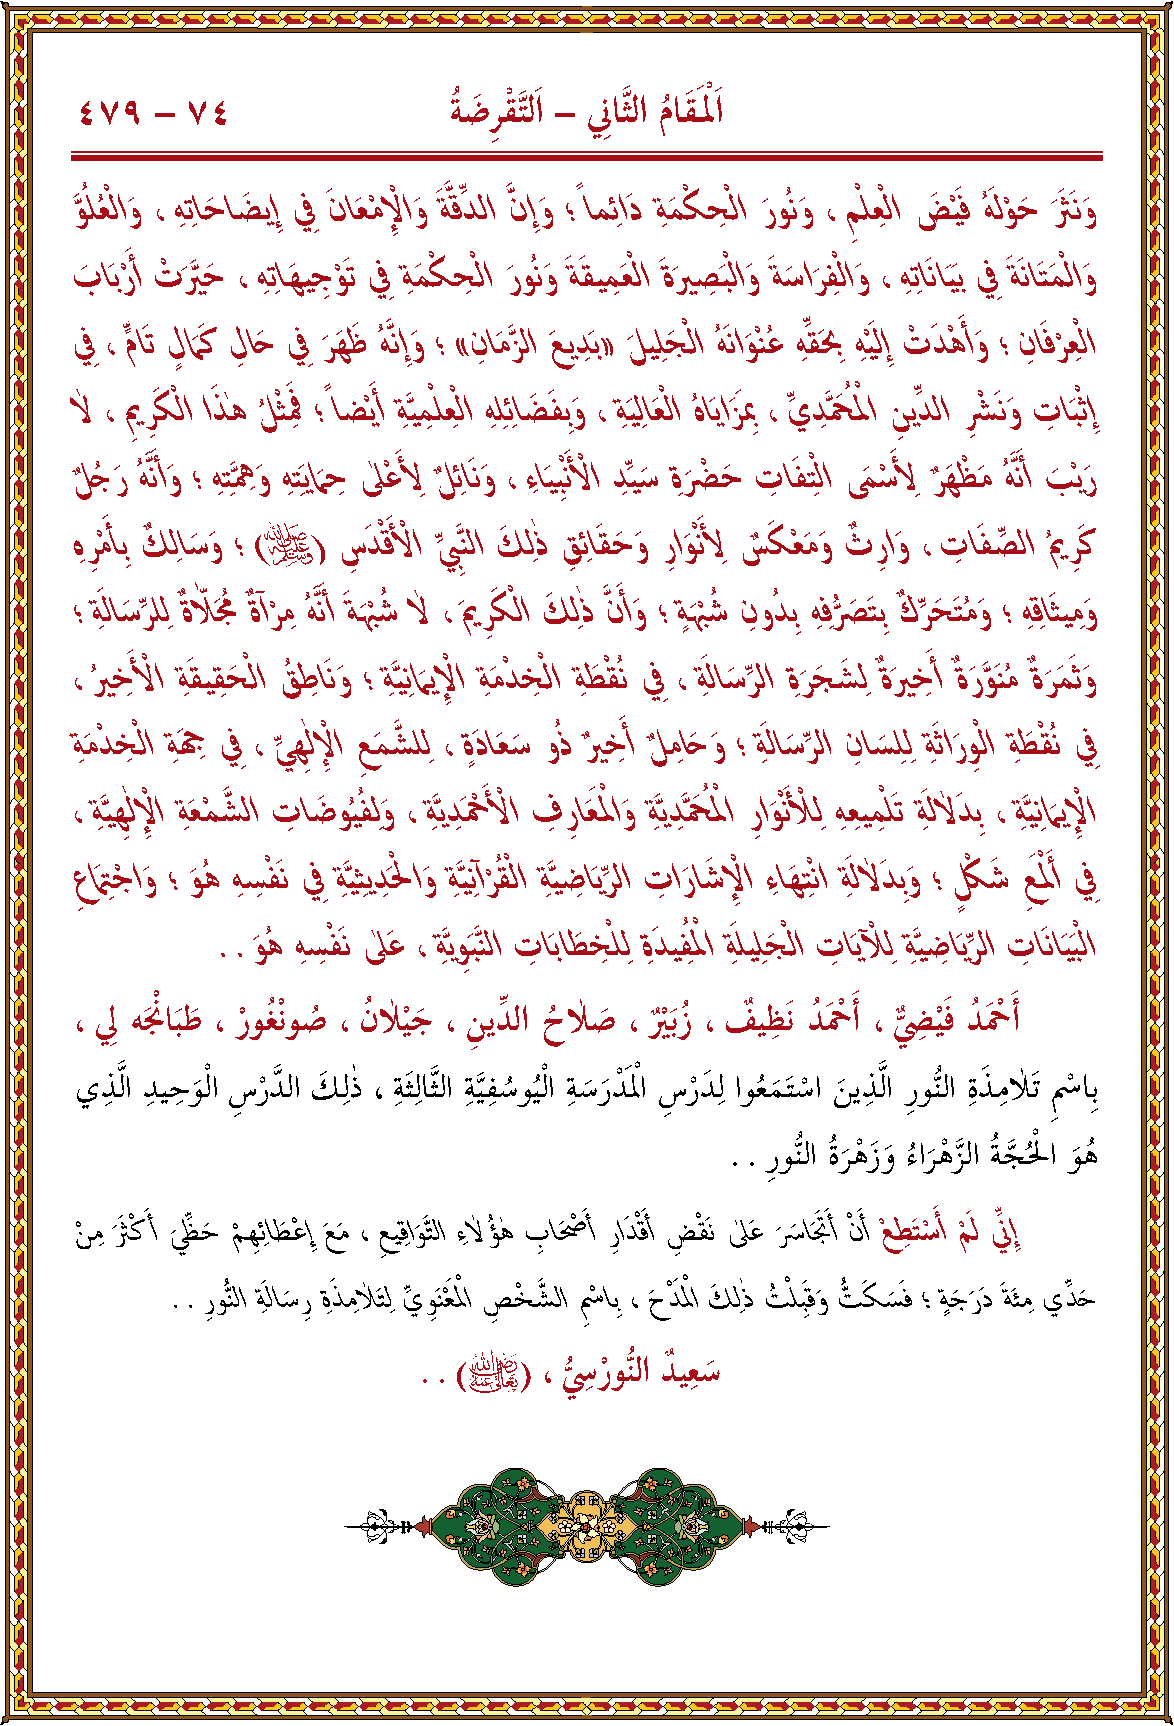 اَلْمَقَامُ الثَّانِي – اَلتَّقْرِضَةُ ٧٤ – ٤٧٩
وَنَثَرَ حَوْلَهُ فَيْضَ الْعِلْمِ ، وَنُورَ الْحِكْمَةِ دَائِماً ؛ وَإِنَّ الدِّقَّةَ وَالْإِمْعَانَ فِي إِيضَاحَاتِهِ ، وَالْعُلُوَّ
وَالْمَتَانَةَ فِي بَيَانَاتِهِ ، وَالْفِرَاسَةَ وَالْبَصِيرَةَ الْعَمِيقَةَ وَنُورَ الْحِكْمَةِ فِي تَوْجِيهَاتِهِ ، حَيَّرَتْ أَرْبَابَ
الْعِرْفَانِ ؛ وَأَهْدَتْ إِلَيْهِ بِحَقِّهِ عُنْوَانَهُ الْجَلِيلَ «بَدِيعَ الزَّمَانِ» ؛ وَإِنَّهُ ظَهَرَ فِي حَالِ كَمَالٍ تَامٍّ ، فِي
إِثْبَاتِ وَنَشْرِ الدِّينِ الْمُحَمَّدِيِّ ، بِمَزَايَاهُ الْعَالِيَةِ ، وَبِفَضَائِلِهِ الْعِلْمِيَّةِ أَيْضاً ؛ فَمِثْلُ هٰذَا الْكَرِيمِ ، لَا
رَيْبَ أَنَّهُ مَظْهَرٌ لِأَسْمَى الْتِفَاتِ حَضْرَةِ سَيِّدِ الْأَنْبِيَاءِ ، وَنَائِلٌ لِأَعْلَى حِمَايَتِهِ وَهِمَّتِهِ ؛ وَأَنَّهُ رَجُلٌ
كَرِيمُ الصِّفَاتِ ، وَارِثٌ وَمَعْكَسٌ لِأَنْوَارِ وَحَقَائِقِ ذٰلِكَ النَّبِيِّ الْأَقْدَسِ (ﷺ) ؛ وَسَالِكٌ بِأَمْرِهِ
وَمِيثَاقِهِ ؛ وَمُتَحَرِّكٌ بِتَصَرُّفِهِ بِدُونِ شُبْهَةٍ ؛ وَأَنَّ ذٰلِكَ الْكَرِيمَ ، لَا شُبْهَةَ أَنَّهُ مِرْآةٌ مُجَلَّاةٌ لِلرِّسَالَةِ ؛
وَثَمَرَةٌ مُنَوَّرَةٌ أَخِيرَةٌ لِشَجَرَةِ الرِّسَالَةِ ، فِي نُقْطَةِ الْخِدْمَةِ الْإِيمَانِيَّةِ ؛ وَنَاطِقُ الْحَقِيقَةِ الْأَخِيرُ ،
فِي نُقْطَةِ الْوِرَاثَةِ لِلِسَانِ الرِّسَالَةِ ؛ وَحَامِلٌ أَخِيرٌ ذُو سَعَادَةٍ ، لِلشَّمَعِ الْإِلٰهِيِّ ، فِي جِهَةِ الْخِدْمَةِ
الْإِيمَانِيَّةِ ، بِدَلَالَةِ تَلْمِيعِهِ لِلْأَنْوَارِ الْمُحَمَّدِيَّةِ وَالْمَعَارِفِ الْأَحْمَدِيَّةِ ، وَلِفُيُوضَاتِ الشَّمْعَةِ الْإِلٰهِيَّةِ ،
فِي أَلْمَعِ شَكْلٍ ؛ وَبِدَلَالَةِ انْتِهَاءِ الْإِشَارَاتِ الرِّيَاضِيَّةِ الْقُرْآنِيَّةِ وَالْحَدِيثِيَّةِ فِي نَفْسِهِ هُوَ ؛ وَاجْتِمَاعِ
الْبَيَانَاتِ الرِّيَاضِيَّةِ لِلْآيَاتِ الْجَلِيلَةِ الْمُفِيدَةِ لِلْخِطَابَاتِ النَّبَوِيَّةِ ، عَلَى نَفْسِهِ هُوَ . .
أَحْمَدُ فَيْضِيٌّ ، أَحْمَدُ نَظِيفٌ ، زُبَيْرٌ ، صَلَاحُ الدِّينِ ، جَيْلَانُ ، صُونْغُورْ ، طَبَانْجَه لِي ،
بِاسْمِ تَلَامِذَةِ النُّورِ الَّذِينَ اسْتَمَعُوا لِدَرْسِ الْمَدْرَسَةِ الْيُوسُفِيَّةِ الثَّالِثَةِ ، ذٰلِكَ الدَّرْسِ الْوَحِيدِ الَّذِي
هُوَ الْحُجَّةُ الزَّهْرَاءُ وَزَهْرَةُ النُّورِ . .
إِنِّي لَمْ أَسْتَطِعْ أَنْ أَتَجَاسَرَ عَلَى نَقْضِ أَقْدَارِ أَصْحَابِ هٰؤُلَاءِ التَّوَاقِيعِ ، مَعَ إِعْطَائِهِمْ حَظِّيَ أَكْثَرَ مِنْ
حَدِّي مِئَةَ دَرَجَةٍ ؛ فَسَكَتُّ وَقَبِلْتُ ذٰلِكَ الْمَدْحَ ، بِاسْمِ الشَّخْصِ الْمَعْنَوِيِّ لِتَلَامِذَةِ رِسَالَةِ النُّورِ . .
سَعِيدٌ النُّورْسِيُّ ، (رَضِيَ اللّٰهُ تَعَالَى عَنْهُ) . .